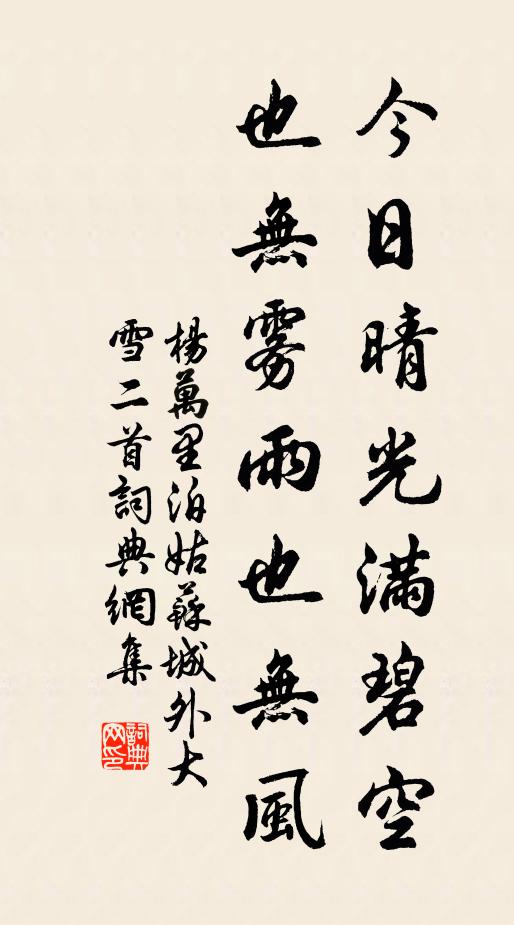 今日晴光滿碧空
也無雾雨也無風
楊萬里泊姑蘇城外大
雪二首詞典網集
詞典
网印